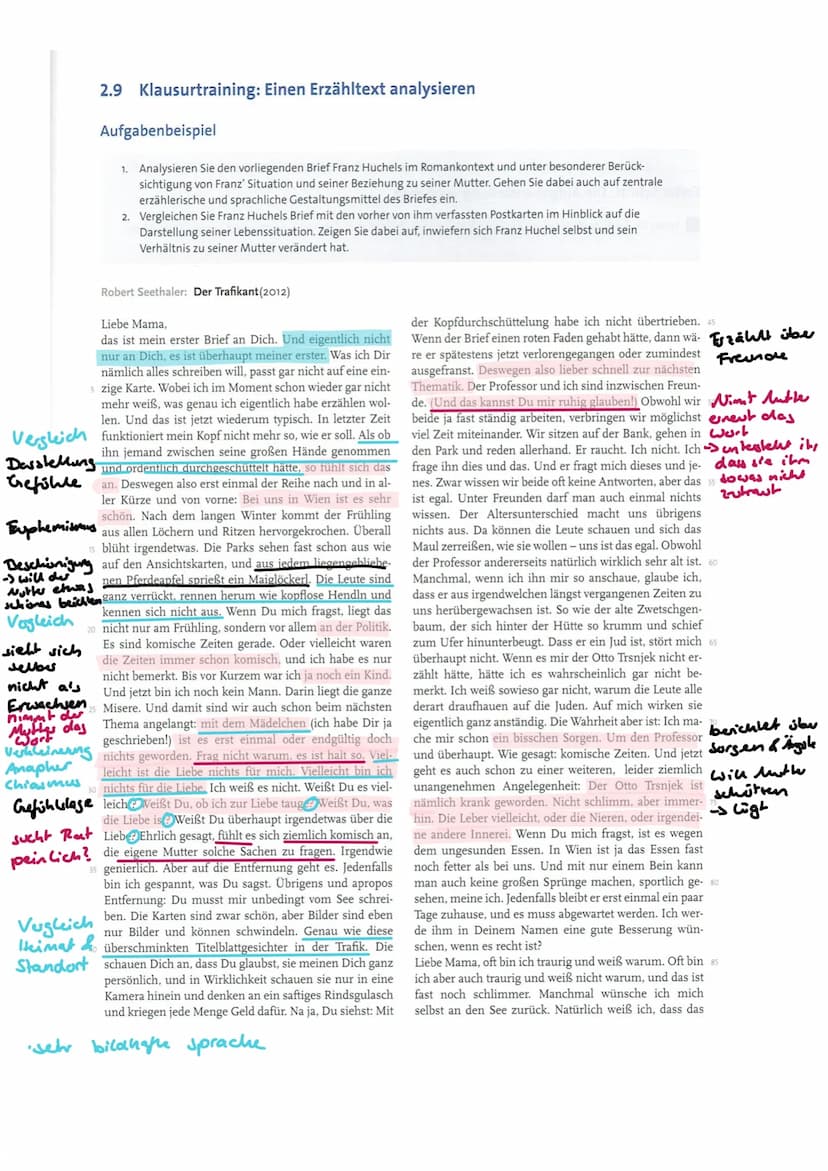 2.9 Klausurtraining: Einen Erzähltext analysieren
Aufgabenbeispiel
1. Analysieren Sie den vorliegenden Brief Franz Huchels im Romankontext und unter besonderer Berück-
sichtigung von Franz' Situation und seiner Beziehung zu seiner Mutter. Gehen Sie dabei auch auf zentrale
erzählerische und sprachliche Gestaltungsmittel des Briefes ein.
2. Vergleichen Sie Franz Huchels Brief mit den vorher von ihm verfassten Postkarten im Hinblick auf die
Darstellung seiner Lebenssituation. Zeigen Sie dabei auf, inwiefern sich Franz Huchel selbst und sein
Verhältnis zu seiner Mutter verändert hat.
Robert Seethaler: Der Trafikant(2012)
Liebe Mama,
das ist mein erster Brief an Dich. Und eigentlich nicht
nur an Dich, es ist überhaupt meiner erster. Was ich Dir
nämlich alles schreiben will, passt gar nicht auf eine ein-
5 zige Karte. Wobei ich im Moment schon wieder gar nicht
mehr weiß, was genau ich eigentlich habe erzählen wol-
len. Und das ist jetzt wiederum typisch. In letzter Zeit
funktioniert mein Kopf nicht mehr so, wie er soll. Als ob
ihn jemand zwischen seine großen Hände genommen
und ordentlich durchgeschüttelt hätte, so fühlt sich das
an. Deswegen also erst einmal der Reihe nach und in al-
ler Kürze und von vorne: Bei uns in Wien ist es sehr
schön. Nach dem langen Winter kommt der Frühling
aus allen Löchern und Ritzen hervorgekrochen. Überall
15 blüht irgendetwas. Die Parks sehen fast schon aus wie
auf den Ansichtskarten, und aus jedem liegengebliebe-
nen Pferdeapfel sprießt ein Maiglöckerl. Die Leute sind
ganz verrückt, rennen herum wie kopflose Hendln und
kennen sich nicht aus. Wenn Du mich fragst, liegt das
20 nicht nur am Frühling, sondern vor allem an der Politik.
Es sind komische Zeiten gerade. Oder vielleicht waren
die Zeiten immer schon komisch, und ich habe es nur
nicht bemerkt. Bis vor Kurzem war ich ja noch ein Kind.
Und jetzt bin ich noch kein Mann. Darin liegt die ganze
25 Misere. Und damit sind wir auch schon beim nächsten
Thema angelangt: mit dem Mädelchen (ich habe Dir ja
geschrieben!) ist es erst einmal oder endgültig doch
nichts geworden. Frag nicht warum, es ist halt so. Viel-
leicht ist die Liebe nichts für mich. Vielleicht bin ich
30 nichts für die Liebe. Ich weiß es nicht. Weißt Du es viel-
leicht? Weißt Du, ob ich zur Liebe tauge? Weißt Du, was
die Liebe ist? Weißt Du überhaupt irgendetwas über die
Liebe? Ehrlich gesagt, fühlt es sich ziemlich komisch an,
die eigene Mutter solche Sachen zu fragen. Irgendwie
35 genierlich. Aber auf die Entfernung geht es. Jedenfalls
bin ich gespannt, was Du sagst. Übrigens und apropos
Entfernung: Du musst mir unbedingt vom See schrei-
ben. Die Karten sind zwar schön, aber Bilder sind eben
nur Bilder und können schwindeln. Genau wie diese
überschminkten Titelblattgesichter in der Trafik. Die
schauen Dich an, dass Du glaubst, sie meinen Dich ganz
persönlich, und in Wirklichkeit schauen sie nur in eine
Kamera hinein und denken an ein saftiges Rindsgulasch
und kriegen jede Menge Geld dafür. Na ja, Du siehst: Mit
der Kopfdurchschüttelung habe ich nicht übertrieben. 45
Wenn der Brief einen roten Faden gehabt hätte, dann wä-
re er spätestens jetzt verlorengegangen oder zumindest
ausgefranst. Deswegen also lieber schnell zur nächsten
Thematik. Der Professor und ich sind inzwischen Freun-
de. (Und das kannst Du mir ruhig glauben!) Obwohl wir
beide ja fast ständig arbeiten, verbringen wir möglichst
viel Zeit miteinander. Wir sitzen auf der Bank, gehen in
den Park und reden allerhand. Er raucht. Ich nicht. Ich
frage ihn dies und das. Und er fragt mich dieses und je-
nes. Zwar wissen wir beide oft keine Antworten, aber das 55
ist egal. Unter Freunden darf man auch einmal nichts
wissen. Der Altersunterschied macht uns übrigens
nichts aus. Da können die Leute schauen und sich das
Maul zerreißen, wie sie wollen – uns ist das egal. Obwohl
der Professor andererseits natürlich wirklich sehr alt ist. 60
Manchmal, wenn ich ihn mir so anschaue, glaube ich,
dass er aus irgendwelchen längst vergangenen Zeiten zu
uns herübergewachsen ist. So wie der alte Zwetschgen-
baum, der sich hinter der Hütte so krumm und schief
zum Ufer hinunterbeugt. Dass er ein Jud ist, stört mich 65
überhaupt nicht. Wenn es mir der Otto Trsnjek nicht er-
zählt hätte, hätte ich es wahrscheinlich gar nicht be-
merkt. Ich weiß sowieso gar nicht, warum die Leute alle
derart draufhauen auf die Juden. Auf mich wirken sie
eigentlich ganz anständig. Die Wahrheit aber ist: Ich ma-
che mir schon ein bisschen Sorgen. Um den Professor
und überhaupt. Wie gesagt: komische Zeiten. Und jetzt
geht es auch schon zu einer weiteren, leider ziemlich
unangenehmen Angelegenheit: Der Otto Trsnjek ist
nämlich krank geworden. Nicht schlimm, aber immer-
hin. Die Leber vielleicht, oder die Nieren, oder irgendei-
ne andere Innerei. Wenn Du mich fragst, ist es wegen
dem ungesunden Essen. In Wien ist ja das Essen fast
noch fetter als bei uns. Und mit nur einem Bein kann
man auch keine großen Sprünge machen, sportlich ge- 80
sehen, meine ich. Jedenfalls bleibt er erst einmal ein paar
Tage zuhause, und es muss abgewartet werden. Ich wer-
de ihm in Deinem Namen eine gute Besserung wün-
schen, wenn es recht ist?
Liebe Mama, oft bin ich traurig und weiß warum. Oft bin 85
ich aber auch traurig und weiß nicht warum, und das ist
fast noch schlimmer. Manchmal wünsche ich mich
selbst an den See zurück. Natürlich weiß ich, dass das
Vergleich
Darstellung
Gefühle
Euphemismus
Beschönigung
→ will der
Mutter etwas
schönes berichten
Vergleich
sieht sich
selber
nicht als
Erwachsen
nimmt der
Mutter das
Wort
Verkleinerung
Anapher
Chiasmus
Gefühlslage
sucht Rat
peinlich?
Vergleich
Heimat &
Standort
·sehr bildhafte sprache
Erzählt über
Freunde
Nimt Mutter
erneut das
Wort
→ unterstellt ihr,
dass sie ihm
sowas nicht
zutraut
berichtet über
Sorgen & Ängste
Will Mutter
schützen
→ lügt